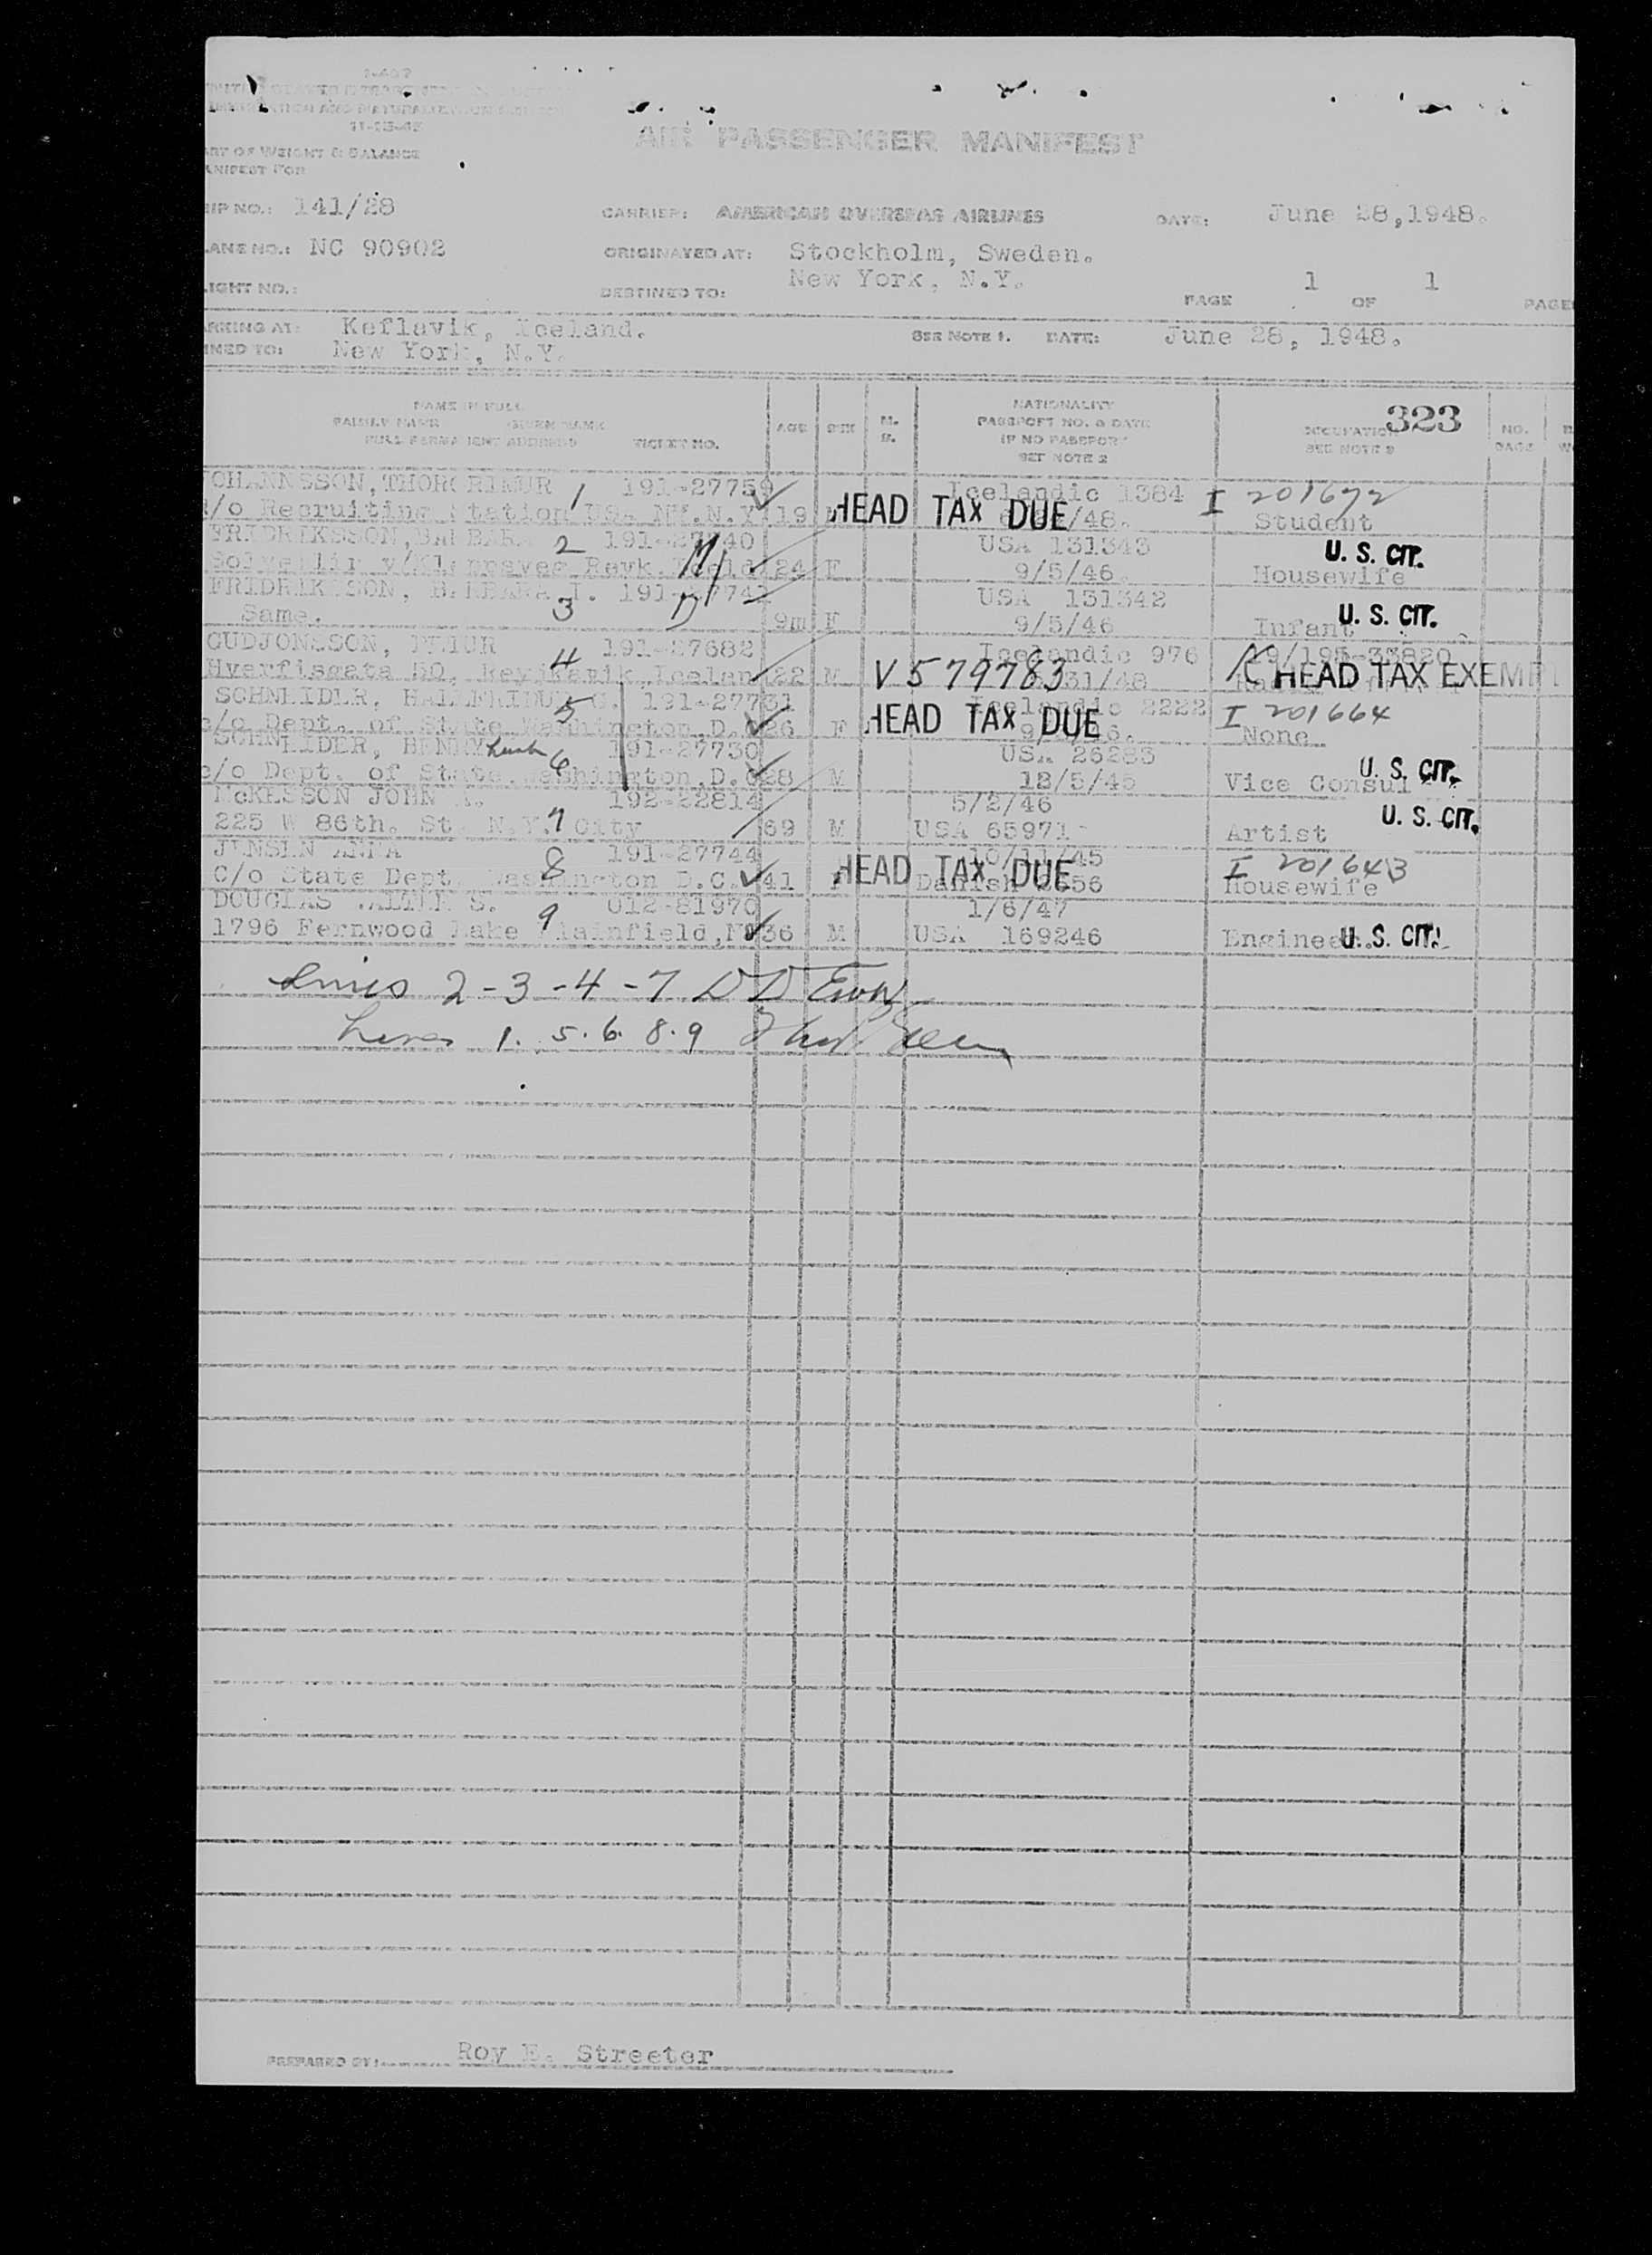 I-467
11-15-45
ART OF WEIGHT & BALANCE
ANIFEST FOR
AIR PASSENGER MANIFEST
IP NO.: 141/28 CARRIER: AMERICAN OVERSEAS AIRLINES DATE: June 28,1948.
LANE NO.: NC 90902 ORIGINATED AT: Stockholm, Sweden.
LIGHT NO.: DESTINED TO: New York, N.Y. PAGE 1 OF 1 PAGE
ARKING AT: Keflavik, Iceland. SEE NOTE 1. DATE: June 28, 1948.
INED TO: New York, N.Y.
NAME IN FULL
FAMILY NAME GIVEN NAME
FULL PERMANENT ADDRESS TICKET NO. AGE SEX M. S.
NATIONALITY
PASSPORT NO. & DATE
IF NO PASSPORT
SEE NOTE 2
OCCUPATION 323
SEE NOTE 3
NO.
OHANNSSON, THORGRIMUR 1 191-27759 Icelandic 1384 I 201672
/o Recruiting Station USA NY.N.Y. 19 HEAD TAX DUE /48. Student
FRIDRIKSSON, BARBARA 2 191-27740 USA 131343 U. S. CIT.
24 F 9/5/46 Housewife
FRIDRIKSSON, 3 191-27741 USA 131342
Same. 9m F 9/5/46 Infant U. S. CIT.
GUDJONSSON, 4 191-27682 Icelandic 976
Hverfisgata 50, Reykjavik, Icelan 22 M V 579783 31/48 HEAD TAX EXEMPT
SCHNEIDER, 5 191-27731 Icelandic 2222 I 201664
c/o Dept. of State Washington, D.C. 26 F HEAD TAX DUE None
SCHNEIDER, HENRY 6 191-27730 USA 26283
c/o Dept. of State, Washington, D.C. 28 M 12/5/45 Vice Consul U. S. CIT.
McKESSON JOHN 192-22814 5/2/46
225 W 86th. St. N.Y. 7 City 69 M USA 65971 Artist U. S. CIT.
JENSEN ANNA 8 191-27744 10/11/45 I 201643
C/o State Dept. Washington D.C. 41 F HEAD TAX DUE Danish 2656 Housewife
DOUGLAS WALTER S. 9 012-81970 1/6/47
1796 Fernwood Lake Plainfield, NJ 36 M USA 169246 Engineer U. S. CIT.
Lines 2-3-4-7
Lines 1. 5. 6. 8. 9
PREPARED BY: Roy E. Streeter